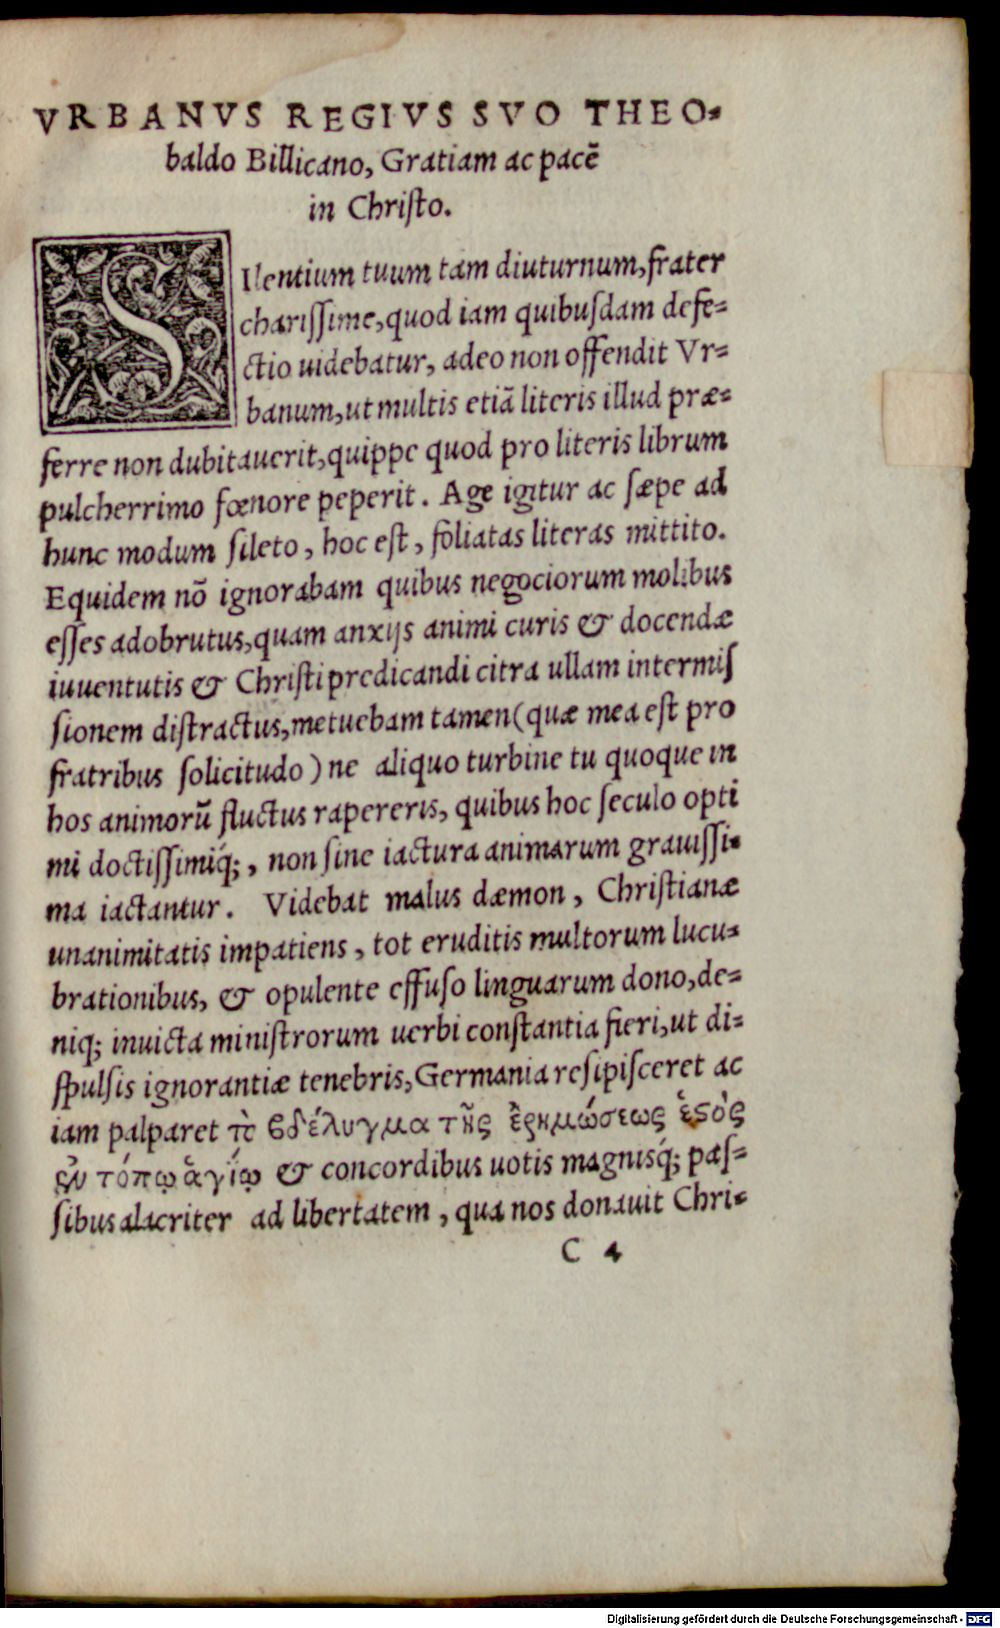 VRBANVS REGIVS SVO THEO-
baldo Billicano, Gratiam ac pacē
in Christo.
SIlentium tuum tam diuturnum, frater
charissime, quod iam quibusdam defe-
ctio uidebatur, adeo non offendit Vr-
banum, ut multis etiā literis illud præ-
ferre non dubitauerit, quippe quod pro literis librum
pulcherrimo fœnore peperit. Age igitur ac sæpe ad
hunc modum sileto, hoc est, foliatas literas mittito.
Equidem nō ignorabam quibus negociorum molibus
esses adobrutus, quam anxijs animi curis & docendæ
iuuentutis & Christi predicandi citra ullam intermis
sionem distractus, metuebam tamen (quæ mea est pro
fratribus solicitudo) ne aliquo turbine tu quoque in
hos animorū fluctus rapereris, quibus hoc seculo opti
mi doctissimiq́;, non sine iactura animarum grauissi-
ma iactantur. Videbat malus dæmon, Christianæ
unanimitatis impatiens, tot eruditis multorum lucu-
brationibus, & opulente effuso linguarum dono, de-
niq; inuicta ministrorum uerbi constantia fieri, ut di-
spulsis ignorantiæ tenebris, Germania resipisceret ac
iam palparet τὸ βδέλυγμα τῆς ἐρημώσεως ἑϛὸς
ἐν τόπῳ ἁγίῳ & concordibus uotis magnisq́; pas-
sibus alacriter ad libertatem, qua nos donauit Chri-
C 4
Digitalisierung gefördert durch die Deutsche Forschungsgemeinschaft - DFG